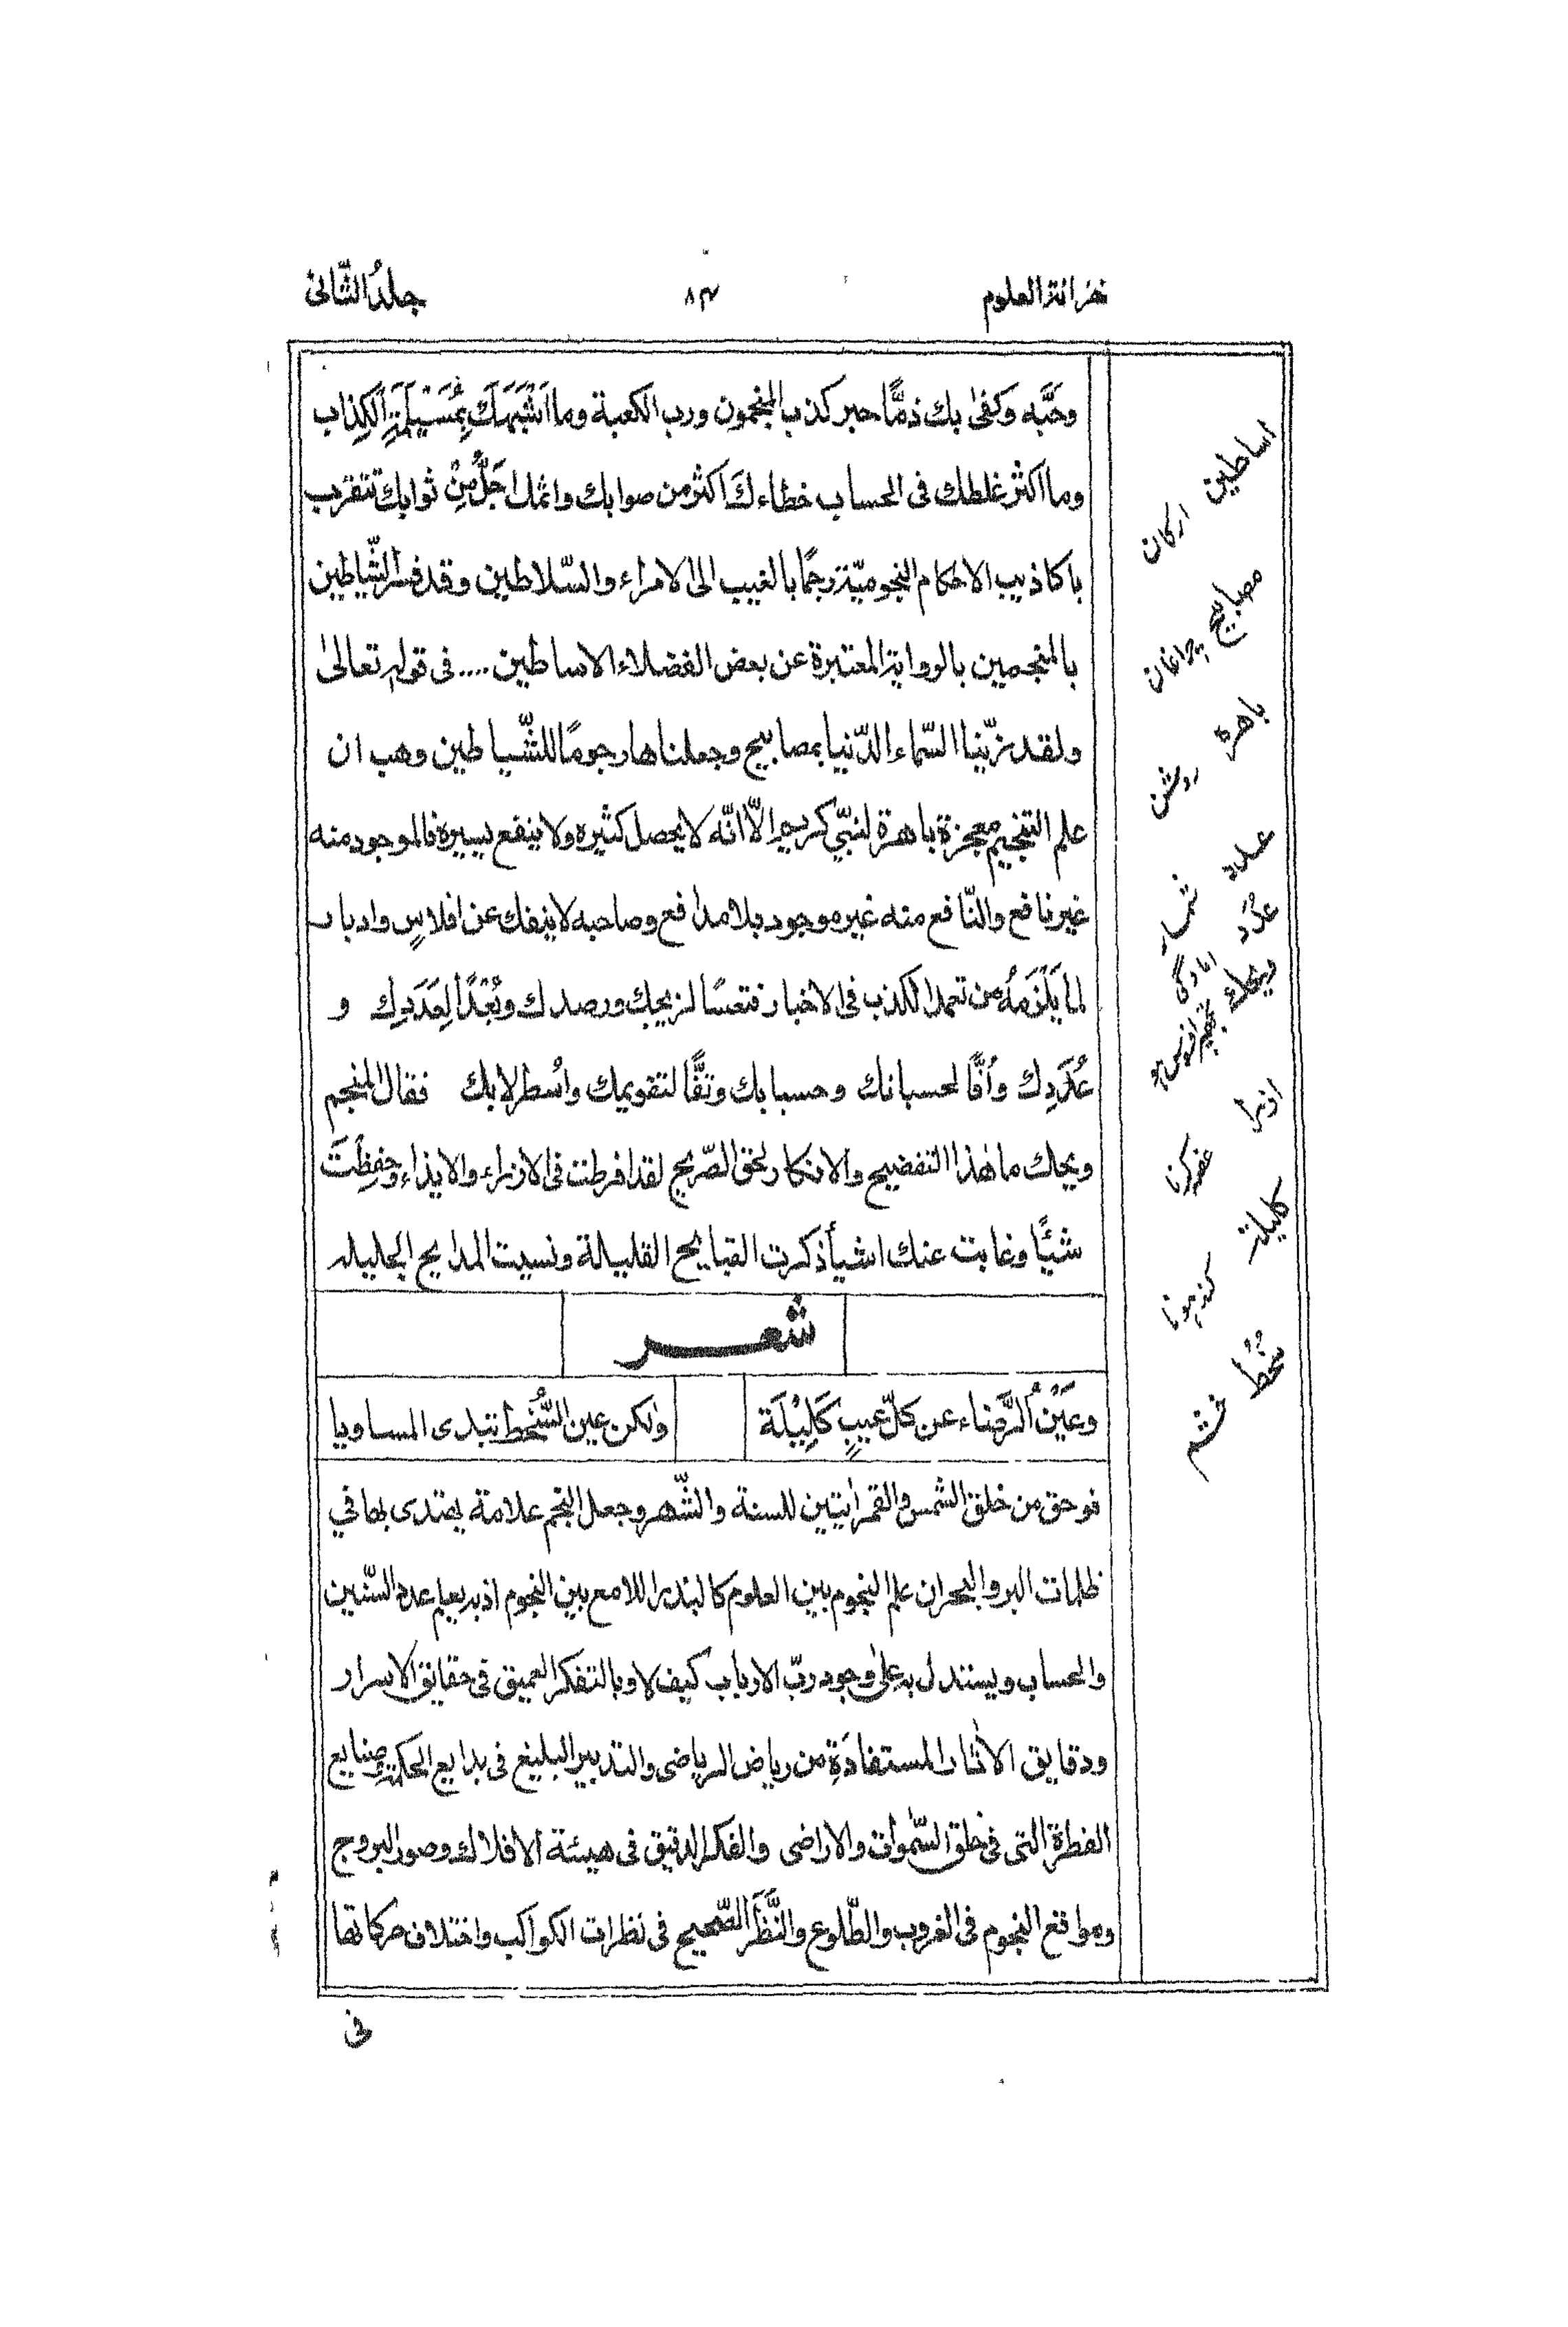 خزانة العلوم
٨٣
جلدُ الثّانی
وحَبّه وکفیٰ بك ذمًّا حبر کذب المنجمون ورب الکعبة وما اَشْبَهَكَ بِمُسَیْلَمَةِ الکذاب
وما اکثر غلطك فی الحساب خطاءكَ اکثر من صوابك واثمك اَجَلُّ مِنْ ثوابك تتقرب
باکاذیب الاحکام النجومیّة رجمًا بالغیب الی الامراء والسّلاطین وقد فسر الشّیاطین
بالمنجمین بالروایة المعتبرة عن بعض الفضلاء الاساطین .... فی قوله تعالیٰ
ولقد زیّنا السّماء الدّنیا بمصابیح وجعلناها رجومًا للشّیاطین وهب ان
علم التنجیم معجزة باهرة لنبیّ کریم الّا انّه لا یحصل کثیره ولا ینفع یسیره فالموجود منه
غیر نافع والنّافع منه غیر موجود بلا مدافع وصاحبه لا ینفك عن افلاسٍ وادبار
لما یَلْزَمُهُ من تعمد الکذب فی الاخبار فتعسًا لزیجك ورصدك وبُعْدًا لِعَدَدِك و
عُدَدِك واُفًّا لحسبانك وحسابك وتفًّا لتقویمك واُسطرلابك فقال المنجم
ویحك ما هٰذا التفضیح والانکار لحق الصّریح لقد افرطت فی الازراء والایذاء وحفِظتَ
شیئًا وغابت عنك اشیأ ذکرت القبایح القلیلة ونسیت المدایح الجلیله
شعر
وعَیْنُ الرَّضاء عن کلّ عیبٍ کَلِیْلَة
ولٰکن عین السُّخط تبدی المساویا
فوحق من خلق الشمس والقمر اٰیتین للسنة والشّهر وجعل النجم علامة یهتدی بها فی
ظلمات البر والبحر ان علم النجوم بین العلوم کالبدر اللامع بین النجوم اذ به یعلم عدد السّنین
والحساب ویستدل به علیٰ وجود ربّ الارباب کیف لا وبالتفکر العمیق فی حقایق الاسرار
ودقایق الاٰثار المستفادَةِ من ریاض الریاضی والتدبیر البلیغ فی بدایع الحکمة وصنایع
الفطرة التی فی خلق السّمٰوات والاراضی والفکر الدقیق فی هیئة الافلاك وصور البروج
ومواقع النجوم فی الغروب والطّلوع والنَّظَر الصّحیح فی نظرات الکواکب واختلاف حرکاتها
فی
اساطین
ارکان
مصابیح
چراغان
باهرة
روشن
عدد
شمار
عُدَد
امادگی
ویحك
ازرا
کلیلة
کند هونا
سُخُط
خشم